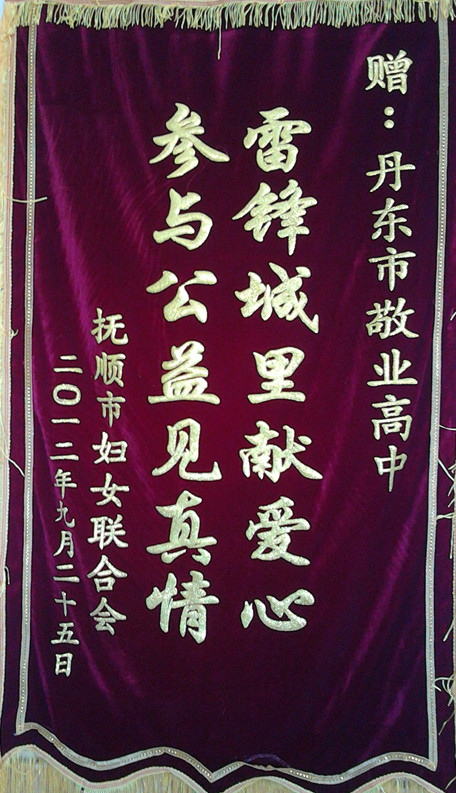 赠：丹东市敬业高中
雷锋城里献爱心
参与公益见真情
抚顺市妇女联合会
二〇一二年九月二十五日